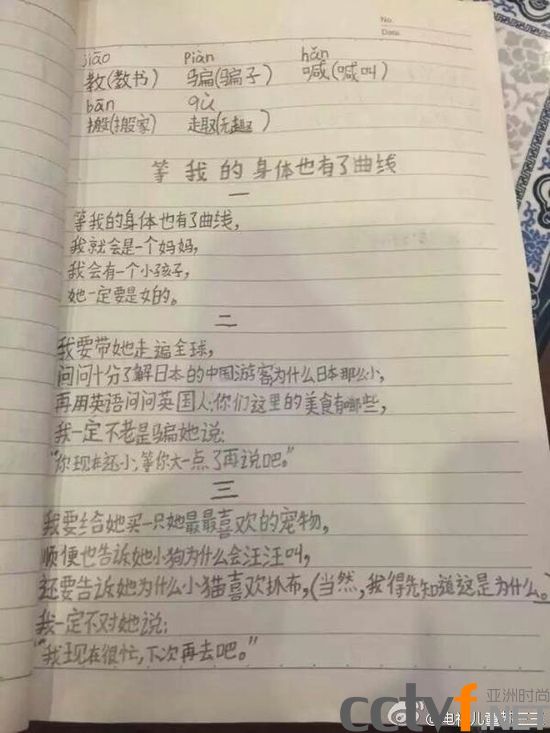 No.
Date.
jiāo piàn hǎn
教(教书) 骗(骗子) 喊(喊叫)
bān qù
搬(搬家) 趣(无趣)
等我的身体也有了曲线
一
等我的身体也有了曲线,
我就会是一个妈妈,
我会有一个小孩子,
她一定要是女的。
二
我要带她走遍全球,
问问十分了解日本的中国游客为什么日本那么小,
再用英语问问英国人:你们这里的美食有哪些,
我一定不老是骗她说:
“你现在还小;等你大一点了再说吧。”
三
我要给她买一只她最最喜欢的宠物,
顺便也告诉她小狗为什么会汪汪叫,
还要告诉她为什么小猫喜欢抓布,(当然,我得先知道这是为什么。
我一定不对她说:
“我现在很忙,下次再去吧。”
亚洲时尚
cctvf.NET